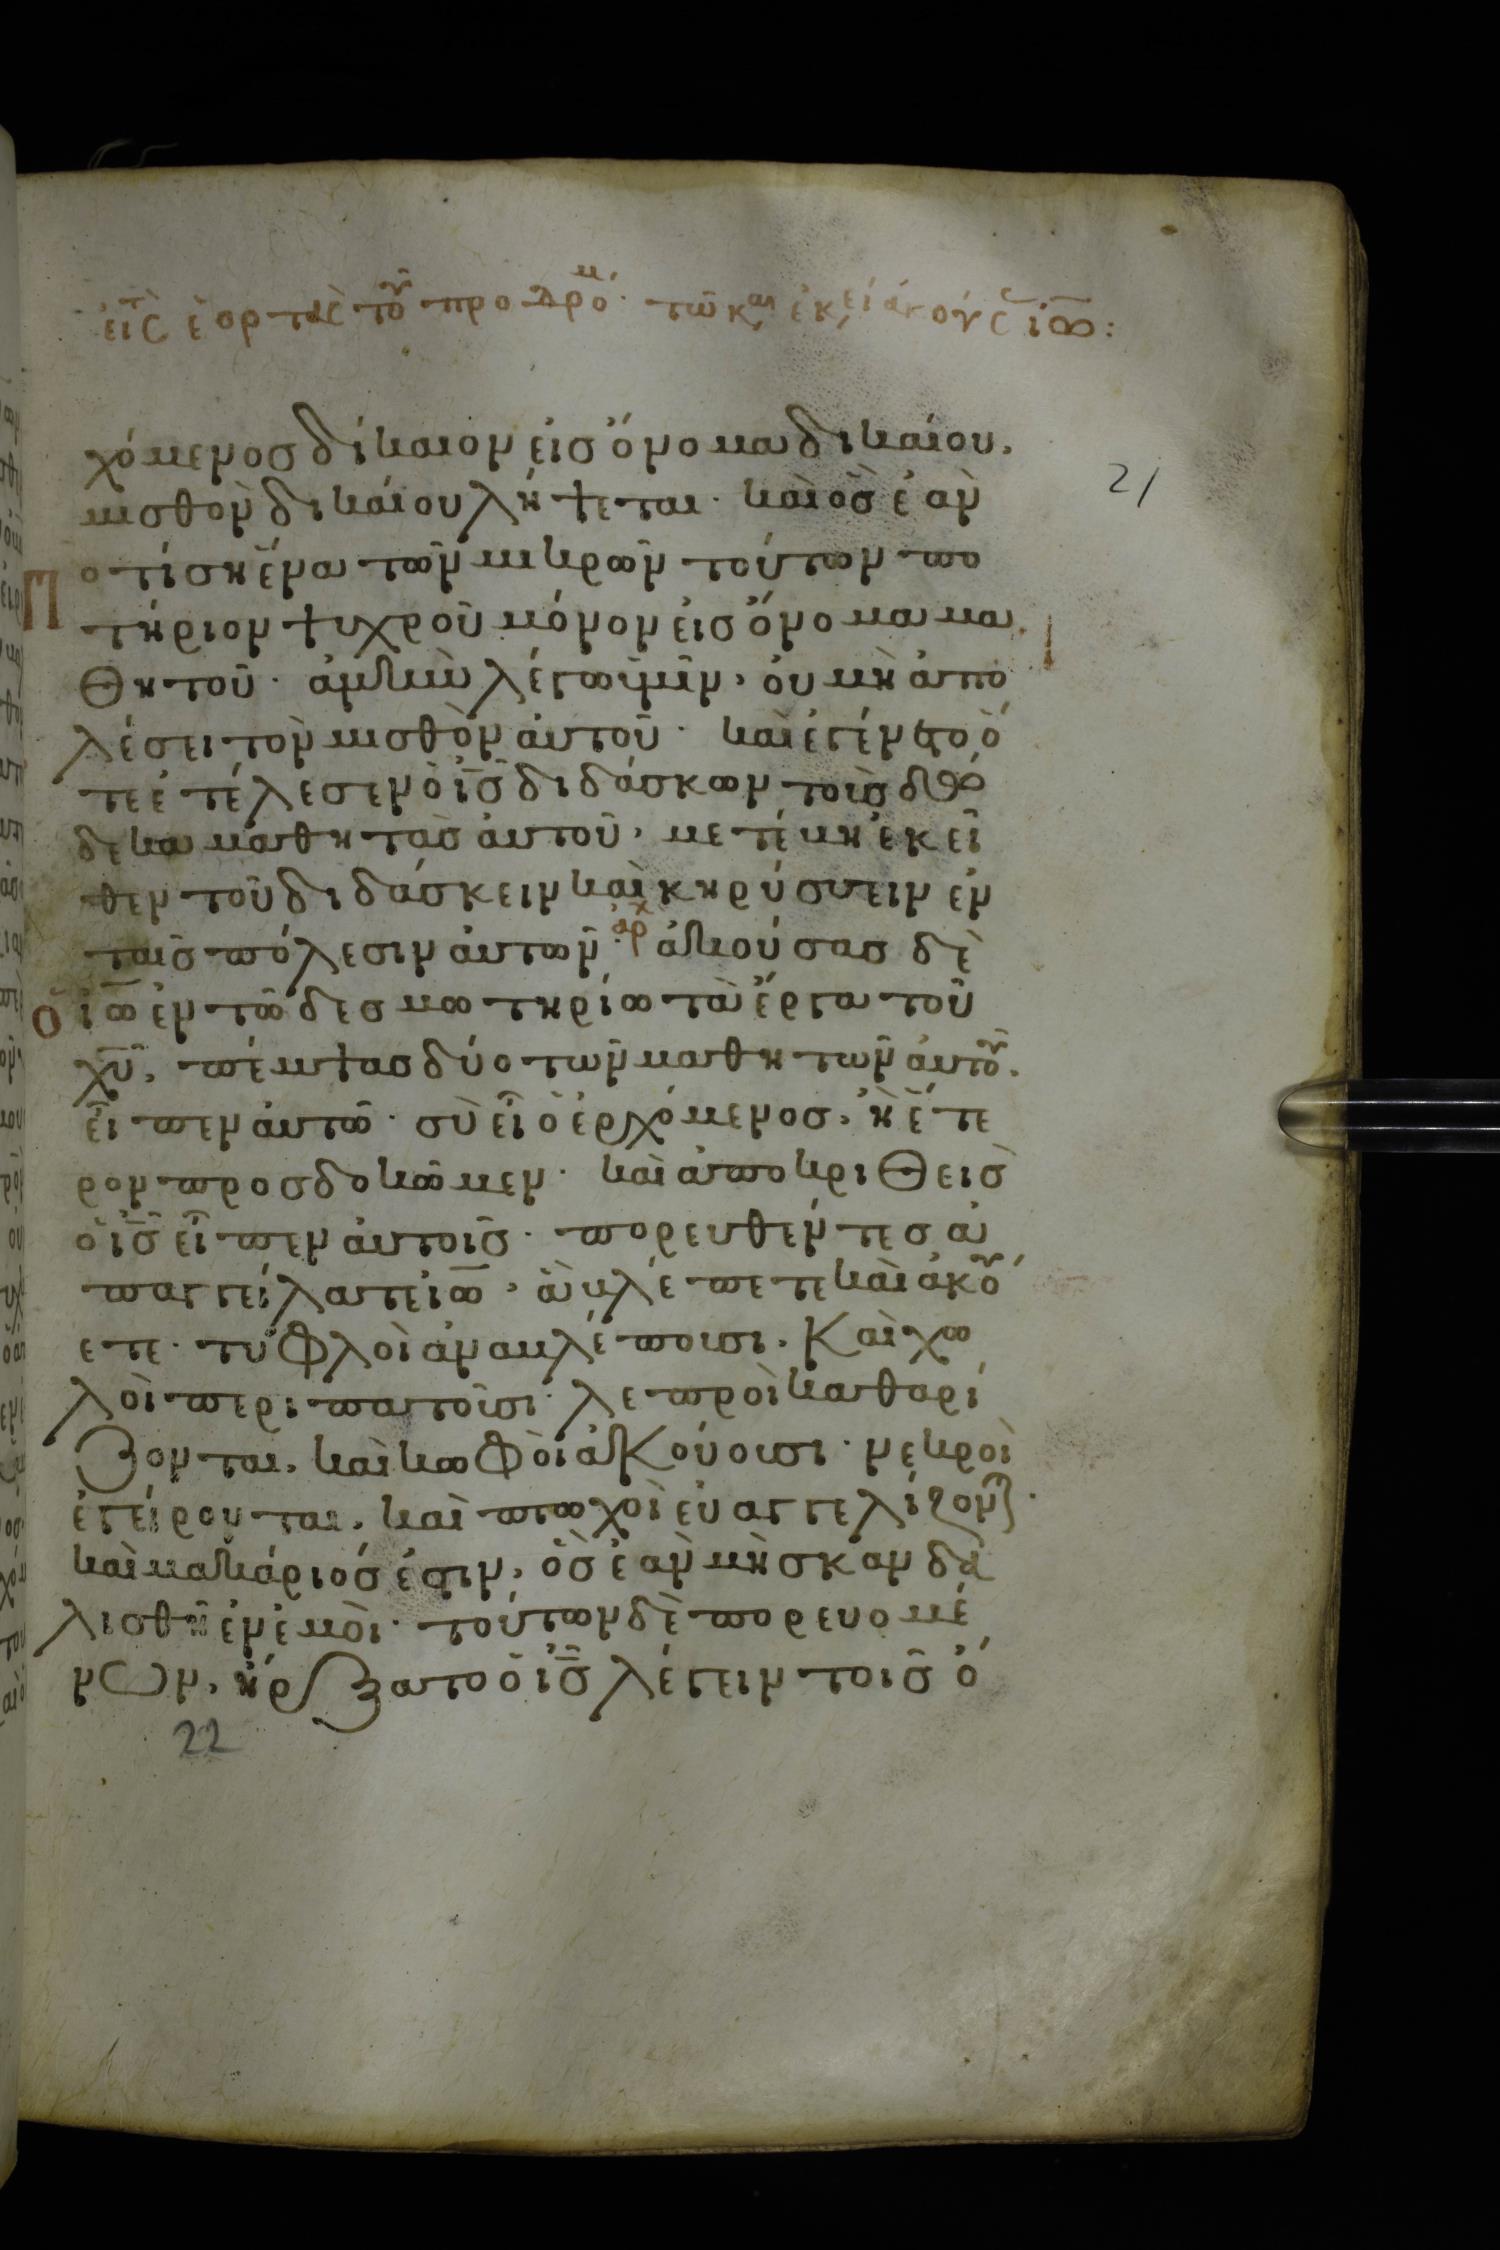 εἰς ἑορτὰς τοῦ προδρόμ τῶ κ ἐκ ἀκούς ἰω:
χόμενος δίκαιον εἰς ὄνομα δικαίου,
21
μισθὸν δικαίου λήψεται· καὶ ὃς ἐὰν
ποτίση ἕνα τῶν μικρῶν τούτων πο
τήριον ψυχροῦ μόνον εἰς ὄνομα μα
θητοῦ· ἀμὴν λέγω ὑμῖν, οὐ μὴ ἀπο
λέσει τὸν μισθὸν αὐτοῦ· καὶ ἐγένετο ὅ
τε ἐτέλεσεν ὁ ις διδάσκων τοῖς δώ
δεκα μαθητὰς αὐτοῦ, μετέβη ἐκεῖ
θεν τοῦ διδάσκειν καὶ κηρύσσειν ἐν
ταῖς πόλεσιν αὐτῶν· ἀρχ ἀκούσας δὲ
ὁ ιω ἐν τῶ δεσμωτηρίω τὰ ἔργα τοῦ
χυ, πέμψας δύο τῶν μαθητῶν αὐτοῦ.
εἶπεν αὐτῶ· σὺ εἶ ὁ ἐρχόμενος, ἢ ἕτε
ρον προσδοκῶμεν· καὶ ἀποκριθεὶς
ὁ ις εἶπεν αὐτοῖς· πορευθέντες ἀ
παγγείλατε ιω, ἃ βλέπετε καὶ ἀκού
ετε· τυφλοὶ ἀναβλέπουσι, καὶ χω
λοὶ περιπατοῦσι· λεπροὶ καθαρί
ζονται, καὶ κωφοὶ ἀκούουσι· νεκροὶ
ἐγείρονται, καὶ πτωχοὶ εὐαγγελίζον·
καὶ μακάριός ἐστιν, ὃς ἐὰν μὴ σκανδα
λισθῆ ἐν ἐμοί· τούτων δὲ πορευομέ
νων, ἤρξατο ὁ ις λέγειν τοῖς ὄ
22